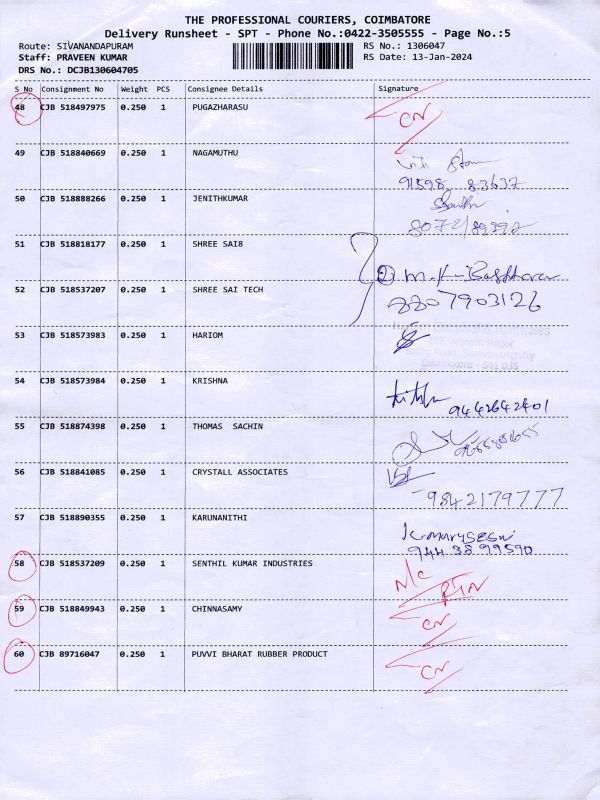 THE PROFESSIONAL COURIERS, COIMBATORE
Delivery Runsheet - SPT - Phone No.:0422-3505555 - Page No.:5
Route: SIVANANDAPURAM RS No.: 1306047
Staff: PRAVEEN KUMAR RS Date: 13-Jan-2024
DRS No.: DCJB130604705
S No Consignment No Weight PCS Consignee Details Signature
48 CJB 518497975 0.250 1 PUGAZHARASU CN
49 CJB 518840669 0.250 1 NAGAMUTHU
91598 83637
50 CJB 518888266 0.250 1 JENITHKUMAR
51 CJB 518818177 0.250 1 SHREE SAI8
52 CJB 518537207 0.250 1 SHREE SAI TECH
8807903126
53 CJB 518573983 0.250 1 HARIOM
Coimbatore - 641 035
54 CJB 518573984 0.250 1 KRISHNA
9442642401
55 CJB 518874398 0.250 1 THOMAS SACHIN
56 CJB 518841085 0.250 1 CRYSTALL ASSOCIATES
9842179777
57 CJB 518890355 0.250 1 KARUNANITHI
944 38 99590
58 CJB 518537209 0.250 1 SENTHIL KUMAR INDUSTRIES N/C
RTN
59 CJB 518849943 0.250 1 CHINNASAMY
CN
60 CJB 89716047 0.250 1 PUVVI BHARAT RUBBER PRODUCT
CN